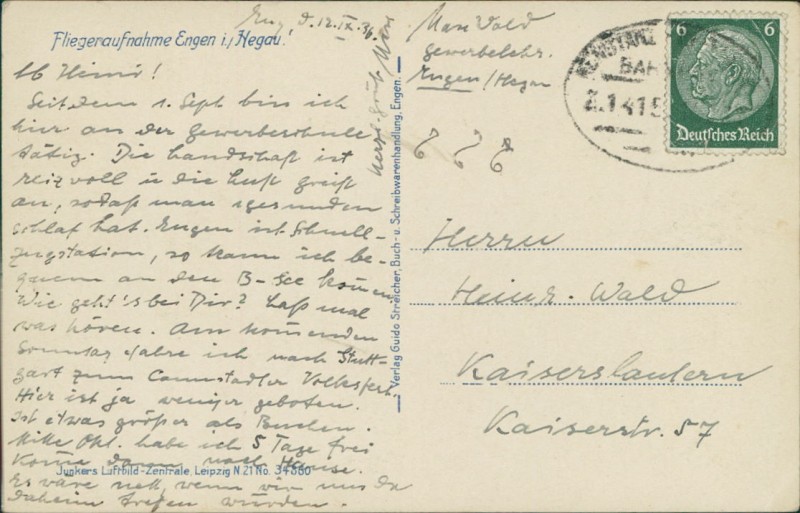 Eng', d. 12.IX.36.
Fliegeraufnahme Engen i./Hegau.
Lb Heini!
Seit dem 1. Sept bin ich
hier an der Gewerbeschule
tätig. Die Landschaft ist
reizvoll u die Luft greift
an, sodaß man gesunden
Schlaf hat. Engen ist Schnell-
zugstation, so kann ich be-
quem an den B-See kom̄en
Wie geht's bei Dir? Laß mal
was hören. Am kom̄enden
Sonntag fahre ich nach Stutt-
gart zum Cannstadter Volksfest.
Hier ist ja weniger geboten.
Ist etwas größer als Buchen.
Mitte Okt. habe ich 5 Tage frei
Kom̄e dann nach Hause.
Es wäre nett, wenn wir uns da
daheim treffen würden.
Herzl. Grüße Max
Junkers Luftbild-Zentrale, Leipzig N 21 No. 34660
Verlag Guido Streicher, Buch- u. Schreibwarenhandlung, Engen.
Max Wald
Gewerbelehr.
Engen/Hegau
6 6 6
KONSTANZ
BAH
Z.1415
6 6
Deutsches Reich
Herrn
Heinr. Wald
Kaiserslautern
Kaiserstr. 57